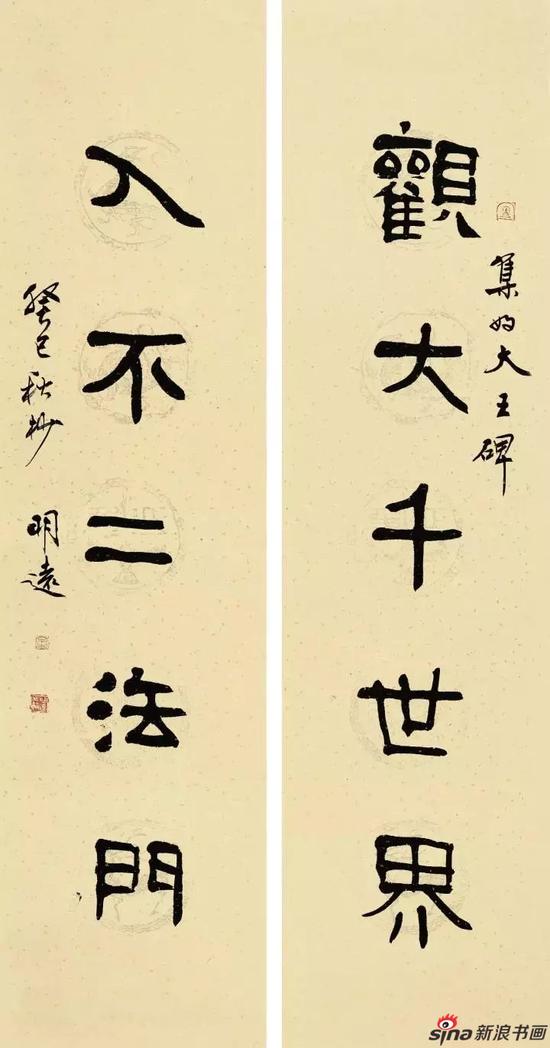 觀大千世界
集好大王碑
入不二法門
癸巳秋杪
明遠
sina新浪书画